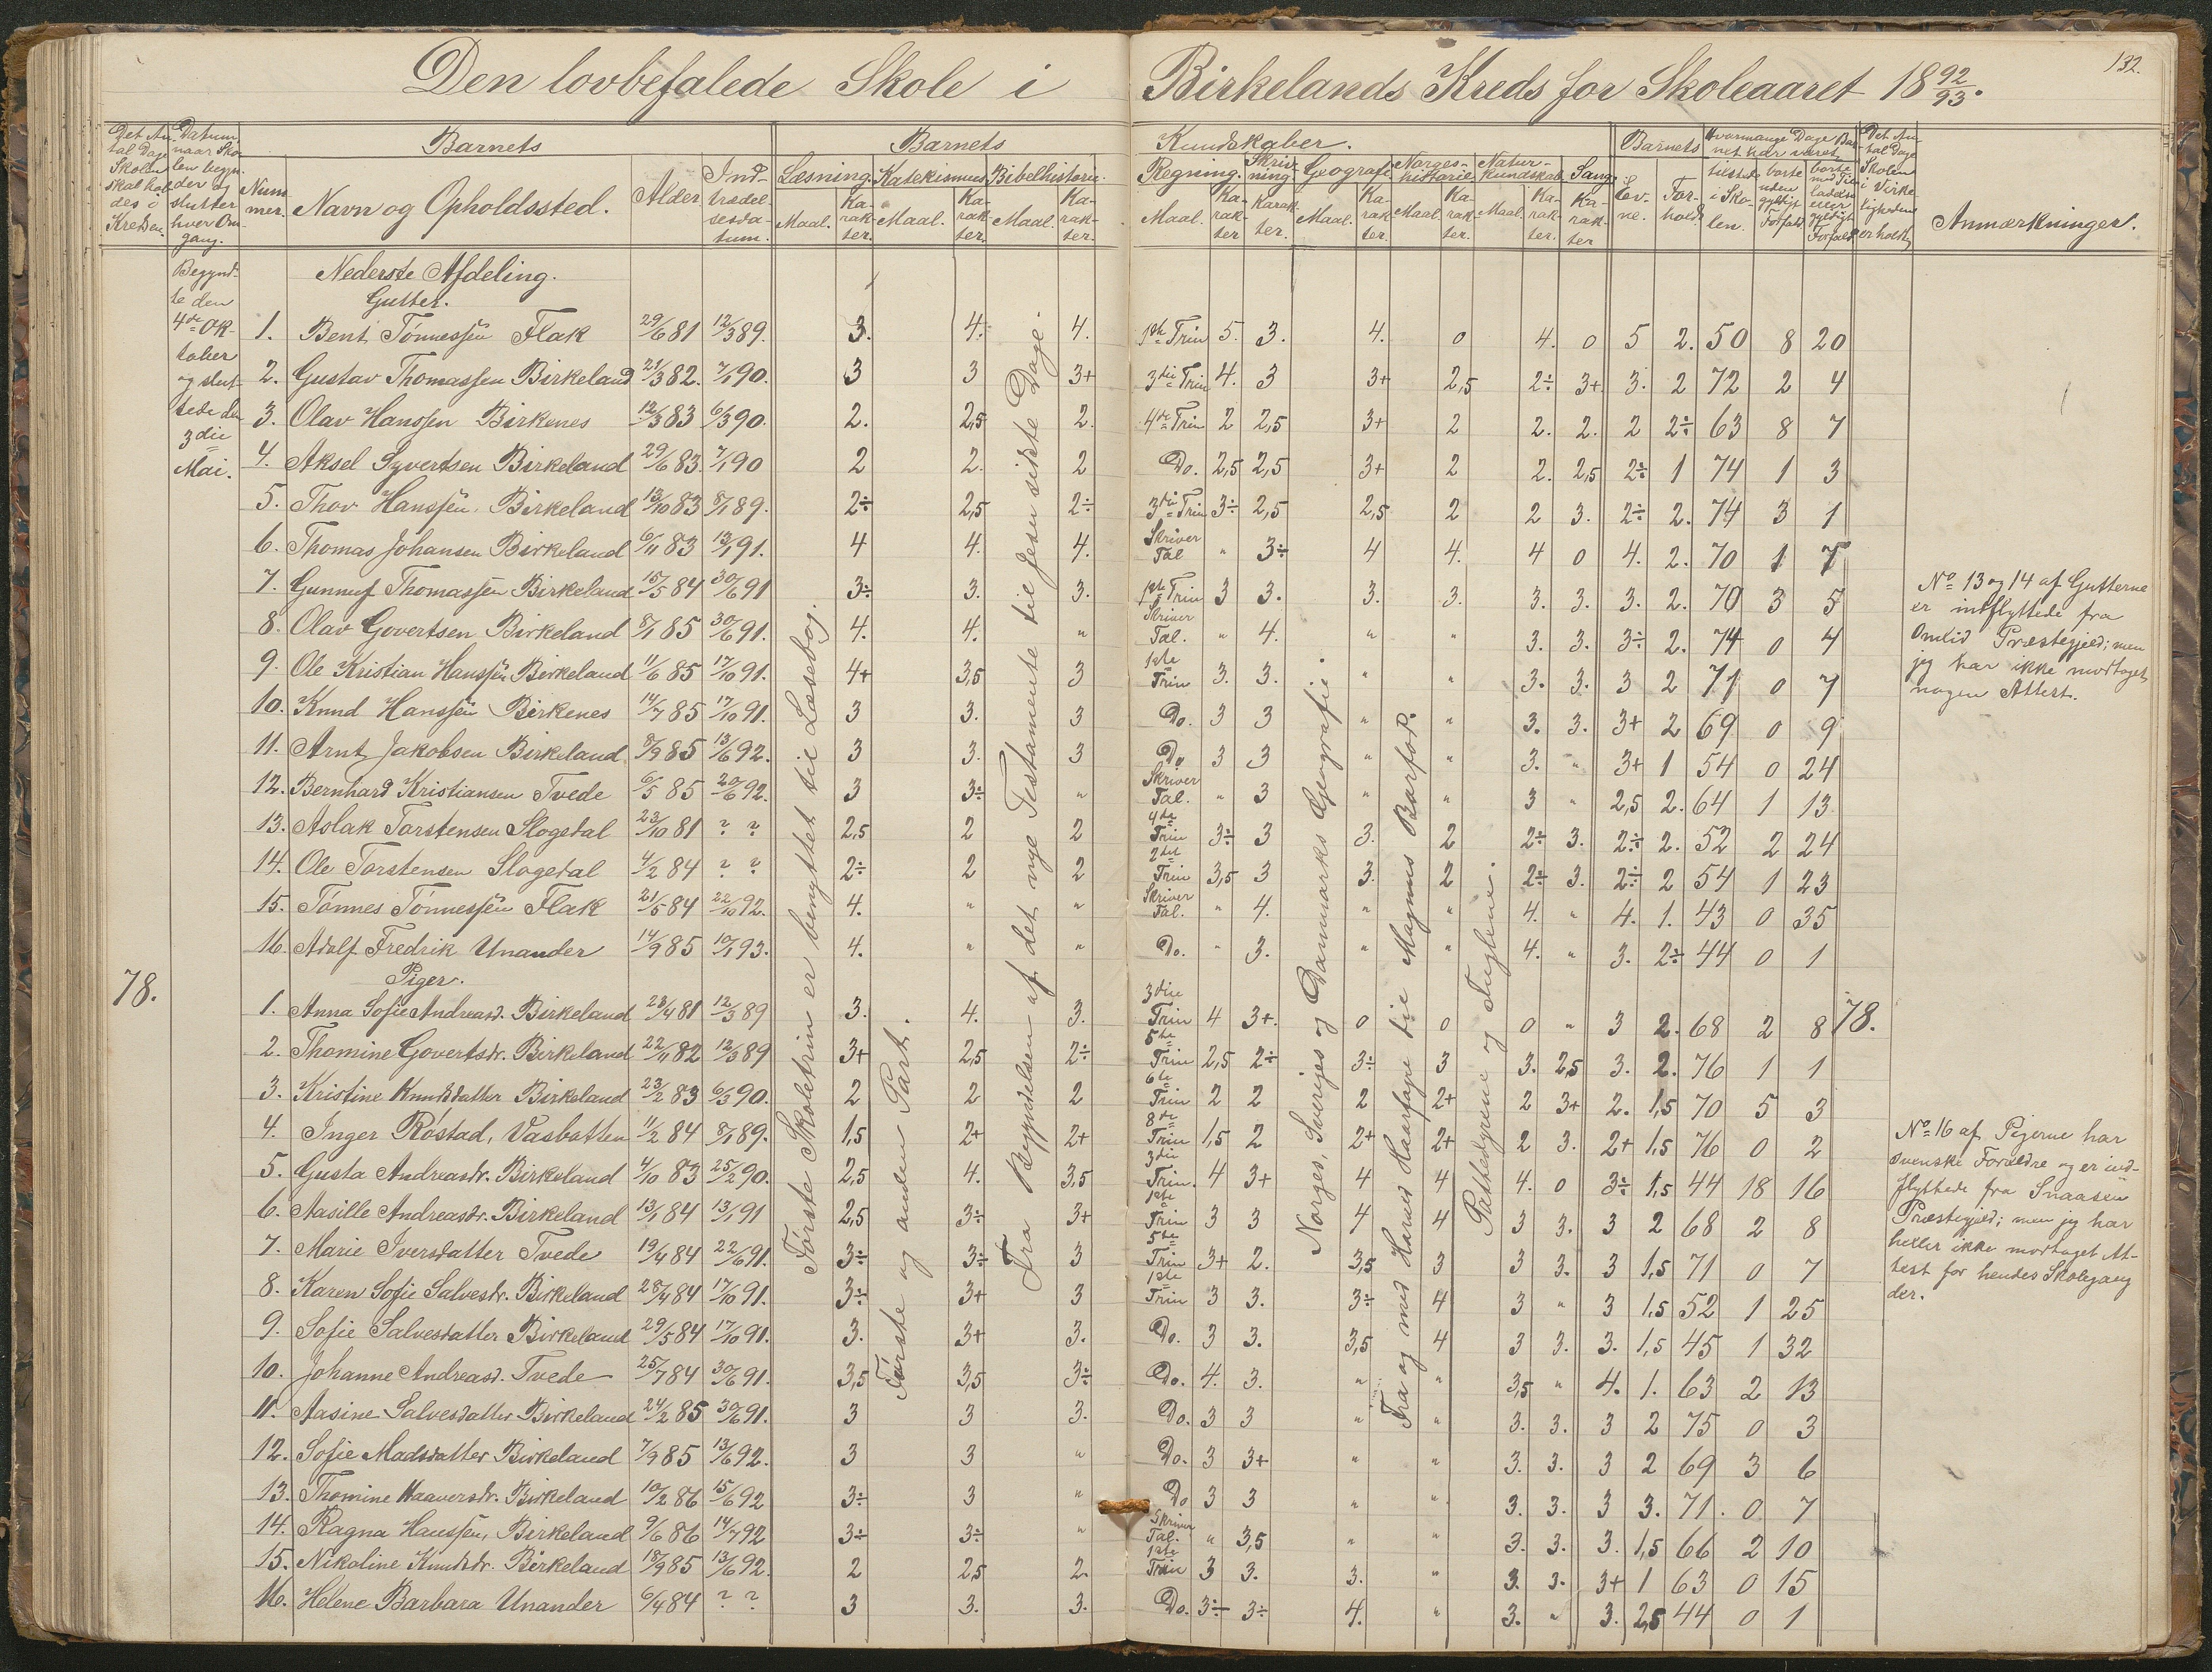 132.
Den lovbefalede Skole i Birkelands Kreds for Skoleaaret 18 92/93.
Det An- tal Dage Skolen skal hol- des i Kredsen.
Datum, naar Sko- len begyn- der og slutter hver Om- gang.
Num- mer.
Barnets
Navn og Opholdssted.
Alder
Ind- trædel- sesda- tum.
Barnets Kundskaber.
Læsning. Maal. Ka- rak- ter.
Katekismus Maal. Ka- rak- ter.
Bibelhistorie. Maal. Ka- rak- ter.
Regning. Maal. Ka- rak- ter
Skriv- ning. Karak- ter.
Geografi. Maal. Ka- rak- ter.
Norges- historie. Maal. Ka- rak- ter.
Natur- kundskab. Maal. Ka- rak- ter.
Sang. Ka- rak- ter
Barnets Ev- ne. For- hold.
Hvormange Dage Bar- net har været
tilstede i Sko- len.
borte uden gyldigt Forfald.
borte med Til- ladelse eller gyldigt Forfald.
Det An- tal Dage Skolen i Virke- ligheden er holdt.
Anmærkninger.
Begynd-
te den
4de Ok-
tober
og slut-
tede den
3die
Mai.
78.
Nederste Afdeling.
Gutter.
1. Bent Tönnessen Flak 29/6 81 12/3 89. 3. 4. 4. 1ste Trin 5. 3. 4. 0 4. 0 5 2. 50 8 20
2. Gustav Thomassen Birkeland 21/3 82. 7/1 90. 3 3 3+ 3die Trin 4. 3 3+ 2,5 2÷ 3+ 3. 2 72 2 4
3. Olav Hanssen Birkenes 12/3 83 6/3 90. 2. 2,5 2. 4de Trin 2 2,5 3+ 2 2. 2. 2 2÷ 63 8 7
4. Aksel Syvertsen Birkeland 29/6 83. 7/1 90 2 2. 2 Do. 2,5 2,5 3+ 2 2. 2,5 2÷ 1 74 1 3
5. Thov Hanssen Birkeland 13/10 83 8/1 89. 2÷ 2,5 2÷ 3die Trin 3÷ 2,5 2,5 2 2 3. 2÷ 2. 74 3 1
6. Thomas Johansen Birkeland 6/11 83 13/1 91. 4 4. 4. Skriver Tal " 3÷ 4 4. 4 0 4. 2. 70 1 7
7. Gunnuf Thomassen Birkeland 15/5 84 30/6 91 3÷ 3. 3. 1ste Trin 3 3. 3. 3. 3. 3. 3. 2. 70 3 5
8. Olav Govertsen Birkeland 8/1 85 30/6 91. 4. 4. " Skriver Tal. " 4. " " 3. 3. 3÷ 2. 74 0 4
9. Ole Kristian Hanssen Birkeland 11/6 85 17/10 91. 4+ 3,5 3 1ste Trin 3. 3. " " 3. 3. 3 2 71 0 7
10. Knud Hanssen Birkenes 14/7 85 17/10 91. 3 3. 3 Do. 3 3 " " 3. 3. 3+ 2 69 0 9
11. Arnt Jakobsen Birkeland 8/9 85 13/6 92. 3 3. 3 Do 3 3 " " 3. " 3+ 1 54 0 24
12. Bernhard Kristiansen Tvede 6/5 85 20/6 92. 3 3÷ " Skriver Tal. " 3 " " 3 " 2,5 2. 64 1 13.
13. Aslak Torstensen Slogedal 23/10 81 ? ? 2,5 2 2 4de Trin 3÷ 3 3. 2 2÷ 3. 2÷ 2. 52 2 24
14. Ole Torstensen Slogedal 4/2 84 ? ? 2÷ 2 2 2det Trin 3,5 3 3. 2 2÷ 3. 2÷ 2 54 1 23
15. Tönnes Tönnessen Flak 21/5 84 22/10 92. 4. " " Skriver Tal. " 4. " " 4. " 4. 1. 43 0 35
16. Adolf Fredrik Unander 14/9 85 10/1 93. 4. " " Do. " 3. " " 4. " 3. 2÷ 44 0 1
Piger.
1. Anna Sofie Andreasd. Birkeland 23/4 81 12/3 89 3. 4. 3. 3die Trin 4 3+. 0 0 0 " 3 2. 68 2 8 78.
2. Thomine Govertsdr. Birkeland 22/11 82 12/3 89 3+ 2,5 2÷ 5te Trin 2,5 2÷ 3÷ 3 3. 2,5 3. 2. 76 1 1
3. Kristine Knudsdatter Birkeland 23/2 83 6/3 90. 2 2 2 6te Trin 2 2 2 2+ 2 3+ 2. 1,5 70 5 3
4. Inger Röstad, Vasbotten 11/2 84 8/1 89. 1,5 2+ 2+ 8de Trin 1,5 2 2+ 2+ 2 3. 2+ 1,5 76 0 2
5. Gusta Andreasdr. Birkeland 4/10 83 25/2 90. 2,5 4. 3,5 3die Trin. 4 3+ 4 4 4. 0 3÷ 1,5 44 18 16
6. Aasille Andreasdr. Birkeland 13/1 84 13/1 91 2,5 3÷ 3+ 1ste Trin 3 3 4 4 3 3. 3 2 68 2 8
7. Marie Iversdatter Tvede 19/4 84 22/6 91. 3÷ 3÷ 3 5te Trin 3+ 2. 3,5 3 3 3. 3 1,5 71 0 7
8. Karen Sofie Salvesdr. Birkeland 28/4 84 17/10 91. 3÷ 3+ 3 1ste Trin 3 3. 3÷ 4 3 " 3 1,5 52 1 25
9. Sofie Salvesdatter Birkeland 29/5 84 17/10 91. 3. 3+ 3. Do. 3 3. 3,5 4 3 3. 3. 1,5 45 1 32
10. Johanne Andreasd. Tvede 25/7 84 30/6 91. 3,5 3,5 3÷ Do. 4. 3. " " 3,5 " 4. 1. 63 2 13
11. Aasine Salvesdatter Birkeland 24/2 85 30/6 91. 3 3 3. Do. 3 3 " " 3. 3. 3 2 75 0 3
12. Sofie Madsdatter Birkeland 7/9 85 13/6 92. 3 3 " Do. 3 3+ " " 3. 3. 3 2 69 3 6
13. Thomine Haaversdr. Birkeland 10/2 86 15/6 92 3÷ 3 " Do 3 3 " " 3. 3. 3 3. 71. 0 7
14. Ragna Hanssen, Birkeland 9/6 86 14/7 92 3÷ 3÷ " Skriver Tal. " 3,5 " " 3. 3. 3. 1,5 66 2 10
15. Nikoline Knudsdr. Birkeland 18/9 85 13/6 92. 2 2,5 2. 1ste Trin 3 3. 3. " 3. 3. 3+ 1 63 0 15
16. Helene Barbara Unander 6/4 84 ? ? 3 3. 3. Do. 3÷ 3÷ 4. " 3. " 3. 2,5 44 0 1
Første Skoletrin er benyttet til Læsebog.
Første og anden Part.
Fra Begyndelsen af det nye Testamente til Jesu sidste Dage.
Norges, Sveriges og Danmarks Geografi.
Fra og med Harald Haarfagre til Magnus Barfod.
Pattedyrene og Fuglene.
No 13 og 14 af Gutterne
er indflyttede fra
Omlid Præstegjeld; men
jeg har ikke modtaget
nogen Attest.
No 16 af Pigerne har
svenske Forældre og er ind-
flyttede fra Snaasen
Præstegjeld; men jeg har
heller ikke modtaget At-
test for hendes Skolegang
der.